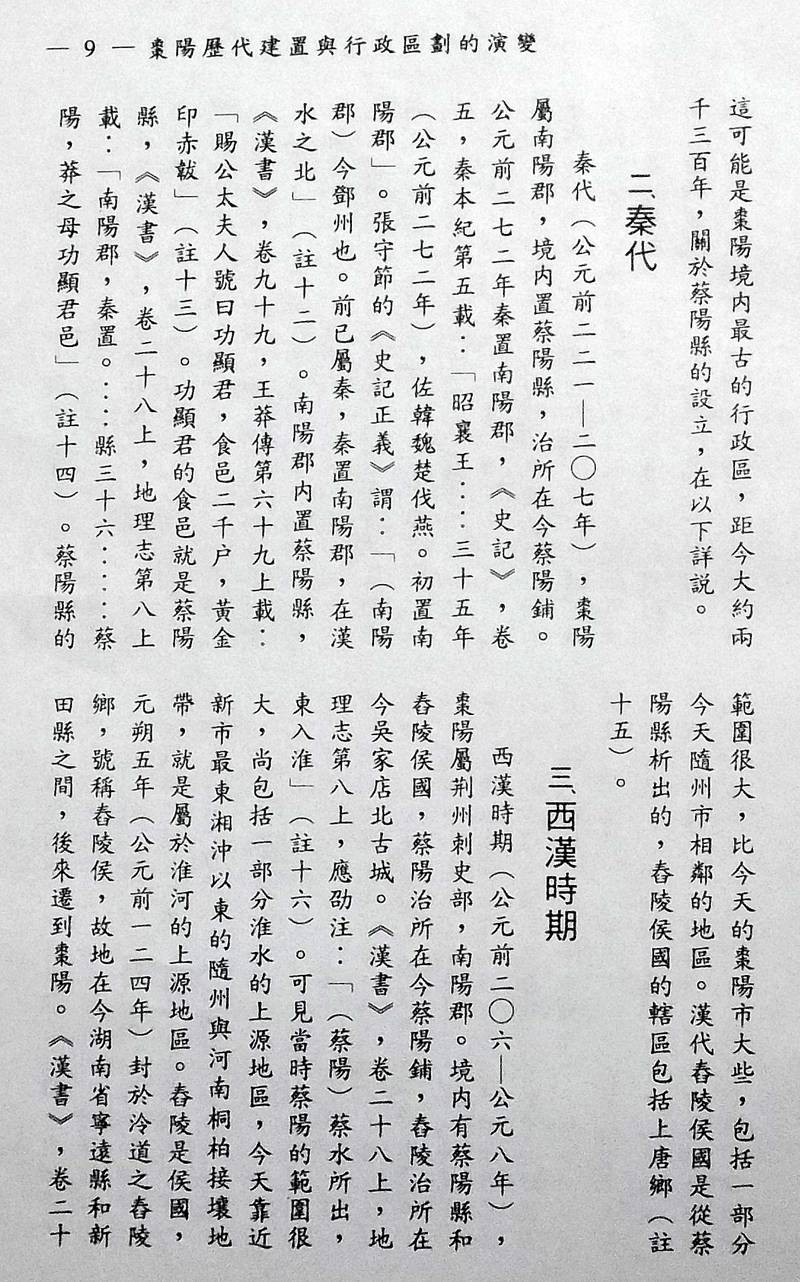 — 9 — 棗陽歷代建置與行政區劃的演變
這可能是棗陽境內最古的行政區，距今大約兩
千三百年，關於蔡陽縣的設立，在以下詳說。
二、秦代
秦代（公元前二二一—二〇七年），棗陽
屬南陽郡，境內置蔡陽縣，治所在今蔡陽鋪。
公元前二七二年秦置南陽郡，《史記》，卷
五，秦本紀第五載：「昭襄王：：三十五年
（公元前二七二年），佐韓魏楚伐燕。初置南
陽郡」。張守節的《史記正義》謂：「（南陽
郡）今鄧州也。前已屬秦，秦置南陽郡，在漢
水之北」（註十二）。南陽郡內置蔡陽縣，
《漢書》，卷九十九，王莽傳第六十九上載：
「賜公太夫人號曰功顯君，食邑二千户，黃金
印赤韍」（註十三）。功顯君的食邑就是蔡陽
縣，《漢書》，卷二十八上，地理志第八上
載：「南陽郡，秦置。：：縣三十六：：：蔡
陽，莽之母功顯君邑」（註十四）。蔡陽縣的
範圍很大，比今天的棗陽市大些，包括一部分
今天隨州市相鄰的地區。漢代舂陵侯國是從蔡
陽縣析出的，舂陵侯國的轄區包括上唐鄉（註
十五）。
三、西漢時期
西漢時期（公元前二〇六—公元八年），
棗陽屬荆州刺史部，南陽郡。境內有蔡陽縣和
舂陵侯國，蔡陽治所在今蔡陽鋪，舂陵治所在
今吳家店北古城。《漢書》，卷二十八上，地
理志第八上，應劭注：「（蔡陽）蔡水所出，
東入淮」（註十六）。可見當時蔡陽的範圍很
大，尚包括一部分淮水的上源地區，今天靠近
新市最東湘沖以東的隨州與河南桐柏接壤地
帶，就是屬於淮河的上源地區。舂陵是侯國，
元朔五年（公元前一二四年）封於泠道之舂陵
鄉，號稱舂陵侯，故地在今湖南省寧遠縣和新
田縣之間，後來遷到棗陽。《漢書》，卷二十